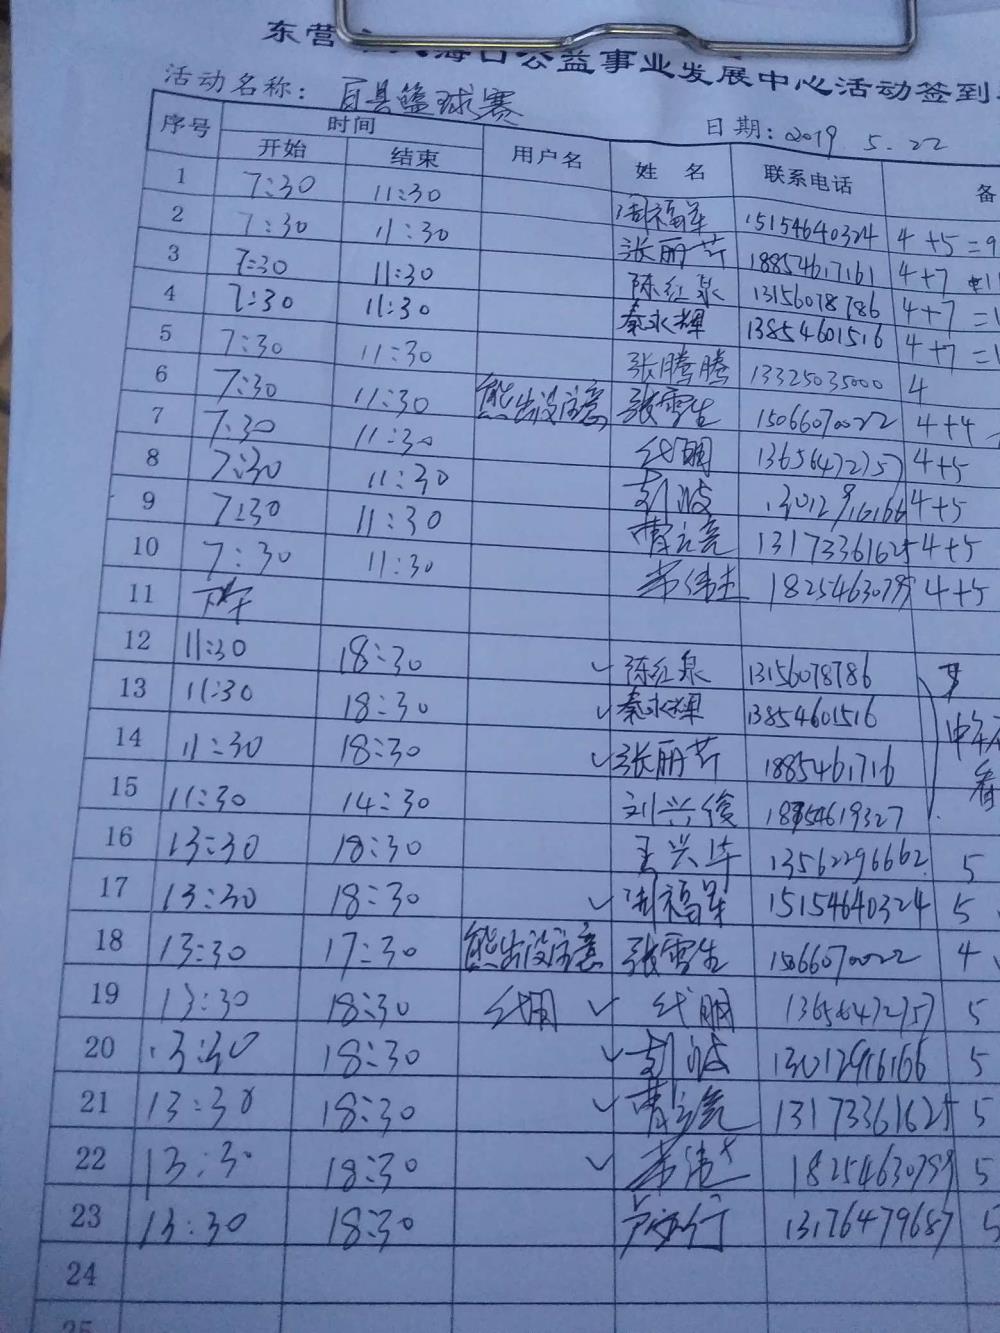 东营 海口公益事业发展中心活动签到
活动名称： 百县篮球赛
日期：2019 5.22
序号 时间 用户名 姓名 联系电话 备
开始 结束
1 7:30 11:30 周福军 15154640324 4+5=9
2 7:30 11:30 张丽芹 18854617161 4+7
3 7:30 11:30 陈红泉 13156078786 4+7=1
4 7:30 11:30 秦永辉 13854601516 4+7=1
5 7:30 11:30 张腾腾 13325035000 4
6 7:30 11:30 熊出没注意 张雪生 15066070022 4+4
7 7:30 11:30 代朋 13656472757 4+5
8 7:30 11:30 彭波 13012916166 4+5
9 7:30 11:30 曹立亮 13173361625 4+5
10 7:30 11:30 18254630799 4+5
11 下午
12 11:30 18:30 ✓ 陈红泉 13156078786
13 11:30 18:30 ✓ 秦永辉 13854601516
14 11:30 18:30 ✓ 张丽芹 1885461716
15 11:30 14:30 刘兴俊 18954619327
16 13:30 18:30 王兴华 13562296662 5
17 13:30 18:30 ✓ 周福军 15154640324 5
18 13:30 17:30 熊出没注意 张雪生 15066070022 4
19 13:30 18:30 代朋 ✓ 代朋 13656472757 5
20 13:30 18:30 ✓ 彭波 13012916166 5
21 13:30 18:30 ✓ 曹立亮 13173361625 5
22 13:30 18:30 ✓ 18254630799 5
23 13:30 18:30 13176479687 5
24
25